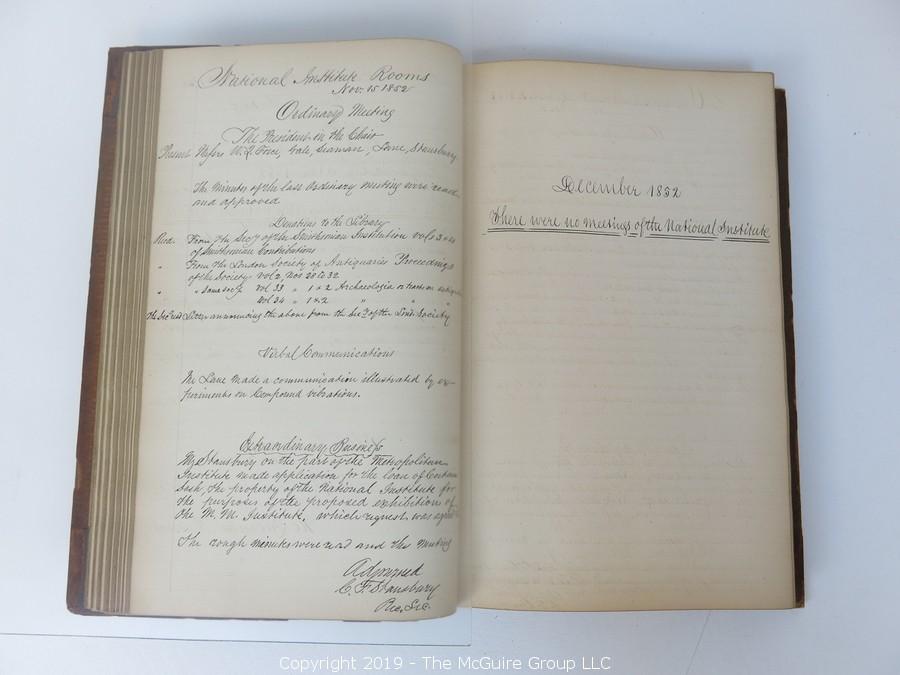 National Institute Rooms
Nov. 15 1852
Ordinary Meeting
The President in the Chair
Present Messrs W. Q. Force, Gale, Seaman, Lane, Stansbury.
The Minutes of the last Ordinary meeting were read
and approved
Donations to the Library
Recd. From the Secy of the Smithsonian Institution vols 3 & 4
of Smithsonian Contributions
" From the London Society of Antiquaries Proceedings
of the Society vol 2, nos 28 to 32
" " Same socy vol 33 " 1 & 2 Archaeologia or tracts on
vol 34 " 1 & 2 " " "
The Sec. read Letter announcing the above from the Secy of the Lond. Society
Verbal Communications
Mr Lane made a communication illustrated by ex-
periments on Compound vibrations.
Extraordinary Business
Mr Stansbury on the part of the Metropolitan
Institute made application for the loan of Certain
the property of the National Institute for
the purposes of the proposed exhibition of
the M. M. Institute, which request was
The rough minutes were read and the Meeting
Adjourned
C. F. Stansbury
Rec. Sec.
December 1852
There were no meetings of the National Institute
Copyright 2019 - The McGuire Group LLC